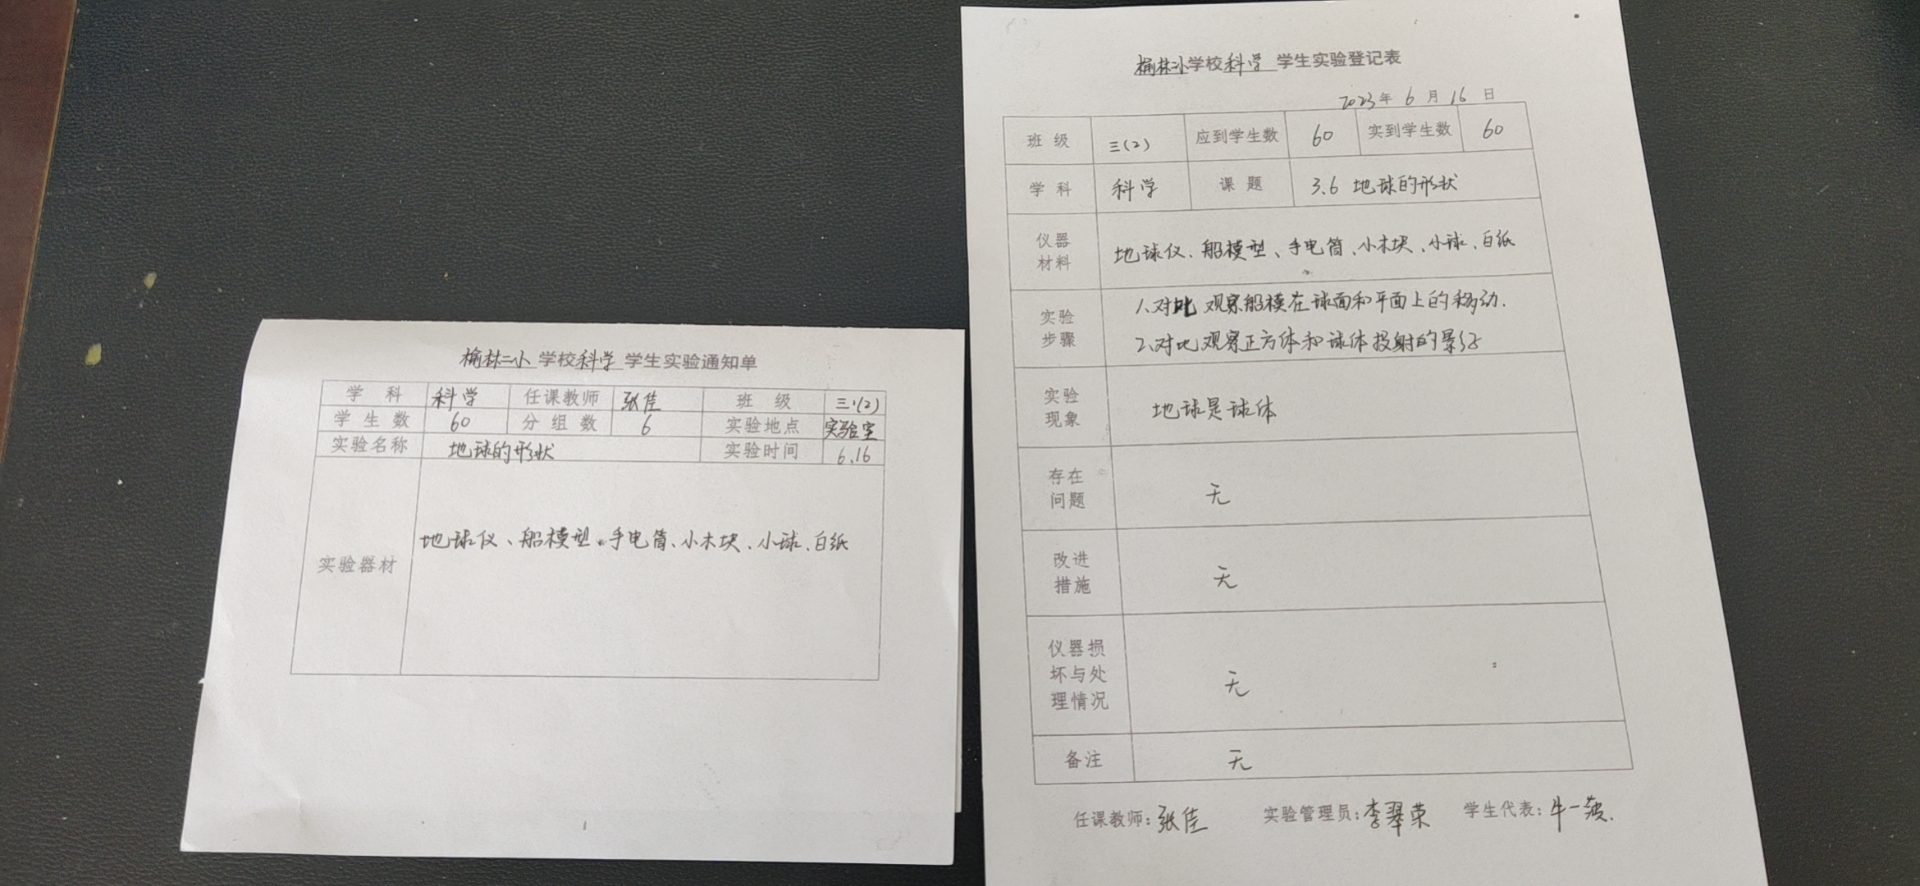 榆林二小 学校科学 学生实验通知单
学 科 科学 任课教师 张佳 班 级 三(2)
学生数 60 分组数 6 实验地点 实验室
实验名称 地球的形状 实验时间 6.16
实验器材 地球仪、船模型、手电筒、小木块、小球、白纸
榆林二小学校科学 学生实验登记表
2023年 6 月 16 日
班 级 三(2) 应到学生数 60 实到学生数 60
学 科 科学 课 题 3.6 地球的形状
仪器
材料
地球仪、船模型、手电筒、小木块、小球、白纸
实验
步骤
1.对比观察船模在球面和平面上的移动.
2.对比观察正方体和球体投射的影子
实验
现象
地球是球体
存在
问题
无
改进
措施
无
仪器损
坏与处
理情况
无
备注 无
任课教师:张佳 实验管理员:李翠荣 学生代表:牛一